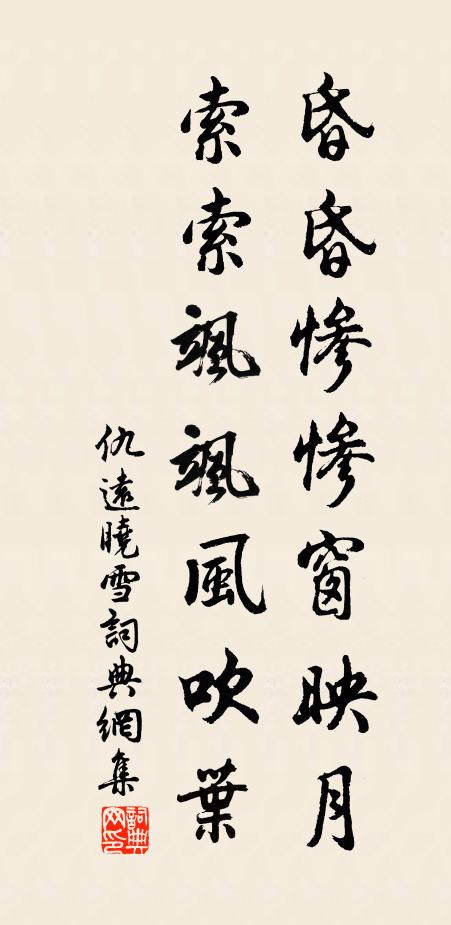 昏昏慘慘窗映月
索索颯颯風吹葉
仇遠曉雪詞典網集
詞典网印